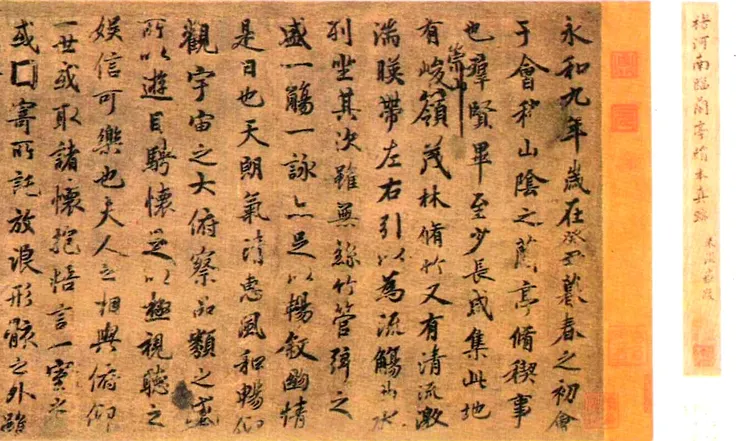 褚河南臨蘭亭絹本真跡
永和九年歲在癸丑暮春之初會
于會稽山陰之蘭亭脩稧事
也羣賢畢至少長咸集此地
有崇山峻嶺茂林脩竹又有清流激
湍暎帶左右引以為流觴曲水
列坐其次雖無絲竹管弦之
盛一觴一詠亦足以暢敘幽情
是日也天朗氣清惠風和暢仰
觀宇宙之大俯察品類之盛
所以遊目騁懷足以極視聽之
娛信可樂也夫人之相與俯仰
一世或取諸懷抱悟言一室之
或因寄所託放浪形骸之外雖